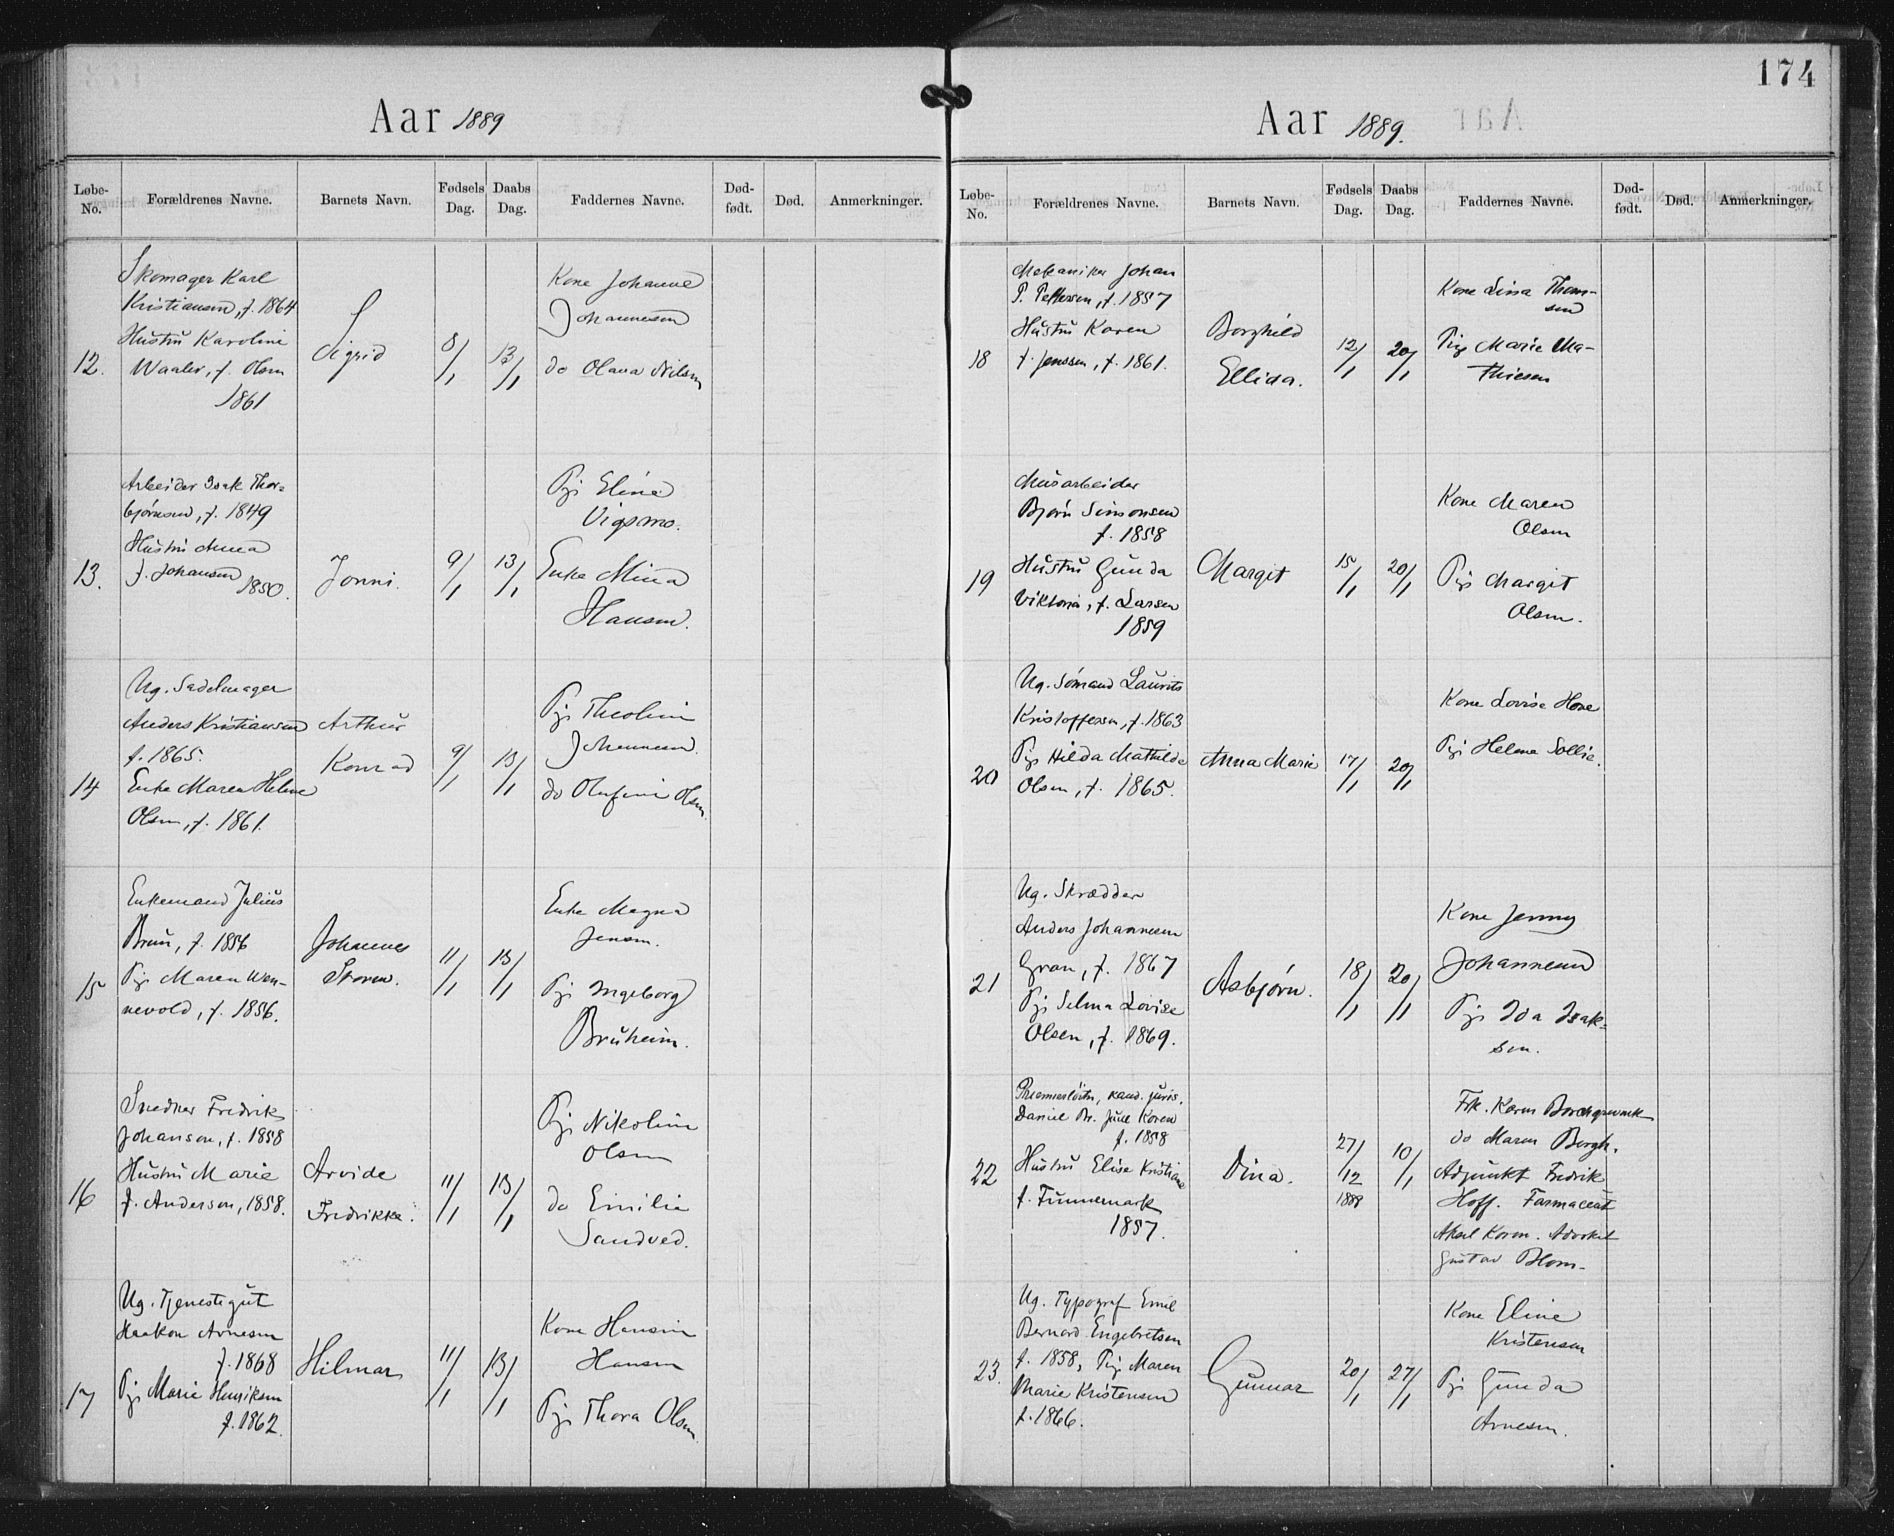 174
Aar 1889
Løbe-No. Forældrenes Navne. Barnets Navn. Fødsels Dag. Daabs Dag. Faddernes Navne. Død-født. Død. Anmerkninger.
12.
Skomager Karl
Kristiansen, f. 1864
Hustru Karoline
Waaler, f. Olsen
1861
Sigrid
8/1
13/1
Kone Johanne
Johannesen
do Olava Nilsen
13.
Arbeider Isak Thor-
bjørnsen, f. 1849
Hustru Anna
f. Johansen
1850.
Jonni.
9/1
13/1
Pige Eline
Vigsmo.
Enke Mina
Hansen.
14
Ug. Sadelmager
Anders Kristiansen
f. 1865.
Enke Maren Helene
Olsen, f. 1861.
Arthur
Konrad
9/1
13/1
Pige Theoline
Johannesen.
do Olufine Olsen
15
Enkemand Julius
Bruu, f. 1856
Pige Maren Wen-
nevold, f. 1856.
Johannes
Storen.
11/1
13/1
Enke Magna
Jensen.
Pige Ingeborg
Bruheim.
16
Snedker Fredrik
Johanson, f. 1858
Hustru Marie
f. Anderson, 1858.
Arvide
Fredrikke.
11/1
13/1
Pige Nikoline
Olsen
do Emilie
Sandved.
17
Ug. Tjenestegut
Haakon Arnesen
f. 1868
Pige Marie Henriksen
f. 1862.
Hilmar
11/1
13/1
Kone Hansine
Hansen
Pige Thora Olsen
Aar 1889.
Løbe-No. Forældrenes Navne. Barnets Navn. Fødsels Dag. Daabs Dag. Faddernes Navne. Død-født. Død. Anmerkninger.
18
Mekaniker Johan
P. Pettersen, f. 1857
Hustru Karen
f. Jenssen, f. 1861.
Borghild
Ellida.
12/1
20/1
Kone Lina Thom-
sen
Pige Marie Ma-
thiesen
19
Murarbeider
Bjørn Simonsen
f. 1858
Hustru Gunda
Viktoria, f. Larsen
1859
Margit
15/1
20/1
Kone Maren
Olsen
Pige Margit
Olsen.
20
Ug. Sømand Laurits
Kristoffersen, f. 1863
Pige Hilda Mathilde
Olsen, f. 1865.
Anna Marie
17/1
20/1
Kone Lovise Hove
Pige Helene Sollie.
21
Ug. Skrædder
Anders Johannesen
Gran, f. 1867
Pige Selma Lovise
Olsen, f. 1869.
Asbjørn.
18/1
20/1
Kone Jenny
Johannesen
Pige Ida Isak-
sen.
22
kand. juris.
Daniel Br. Juul Koren
f. 1858
Hustru Elise Kristiane
f. Finnemark
1857.
Dina.
27/12
1888
10/1
Frk. Karen Borchgrevink
do Maren Bergh.
Adjunkt Fredrik
Hoff. Farmaceut
Aksel Koren. Advokat
Gustav Blom-
23.
Ug. Typograf Emil
Bernard Engebretsen
f. 1858, Pige Maren
Marie Kristensen
f. 1866.
Gunnar
20/1
27/1
Kone Eline
Kristensen
Pige Gunda
Arnesen.